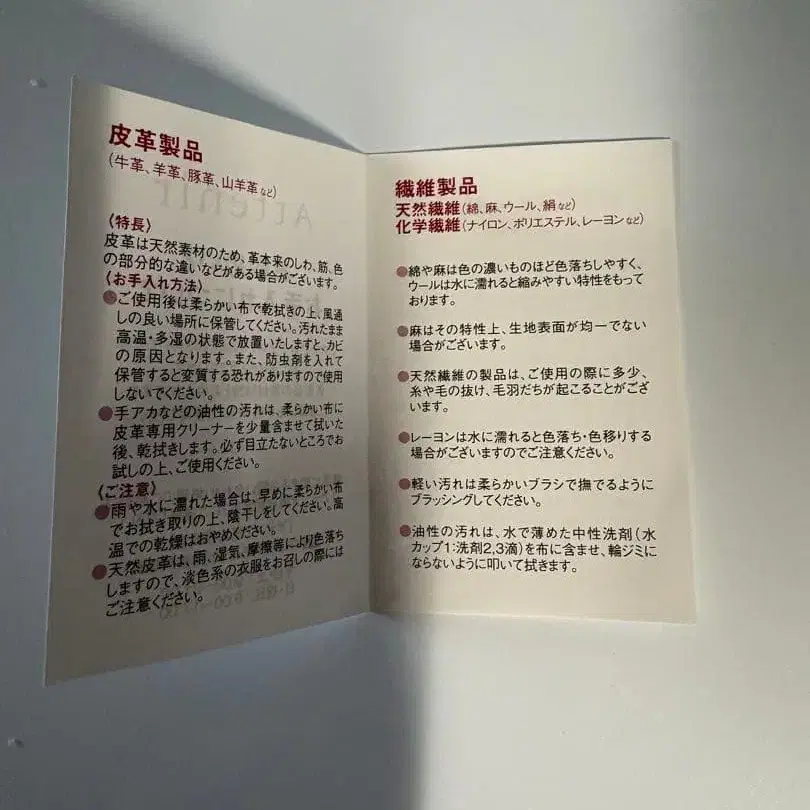 皮革製品
(牛革、羊革、豚革、山羊革など)
〈特長〉
皮革は天然素材のため、革本来のしわ、筋、色
の部分的な違いなどがある場合がございます。
〈お手入れ方法〉
●ご使用後は柔らかい布で乾拭きの上、風通
しの良い場所に保管してください。汚れたまま
高温・多湿の状態で放置いたしますと、カビ
の原因となります。また、防虫剤を入れて
保管すると変質する恐れがありますので使用
しないでください。
●手アカなどの油性の汚れは、柔らかい布に
皮革専用クリーナーを少量含ませて拭いた
後、乾拭きします。必ず目立たないところでお
試しの上、ご使用ください。
〈ご注意〉
●雨や水に濡れた場合は、早めに柔らかい布
でお拭き取りの上、陰干しをしてください。高
温での乾燥はおやめください。
●天然皮革は、雨、湿気、摩擦等により色落ち
しますので、淡色系の衣服をお召しの際には
ご注意ください。
繊維製品
天然繊維(綿、麻、ウール、絹など)
化学繊維(ナイロン、ポリエステル、レーヨンなど)
●綿や麻は色の濃いものほど色落ちしやすく、
ウールは水に濡れると縮みやすい特性をもって
おります。
●麻はその特性上、生地表面が均一でない
場合がございます。
●天然繊維の製品は、ご使用の際に多少、
糸や毛の抜け、毛羽だちが起こることがござ
います。
●レーヨンは水に濡れると色落ち・色移りする
場合がございますのでご注意ください。
●軽い汚れは柔らかいブラシで撫でるように
ブラッシングしてください。
●油性の汚れは、水で薄めた中性洗剤(水
カップ1:洗剤2,3滴)を布に含ませ、輪ジミに
ならないように叩いて拭きます。